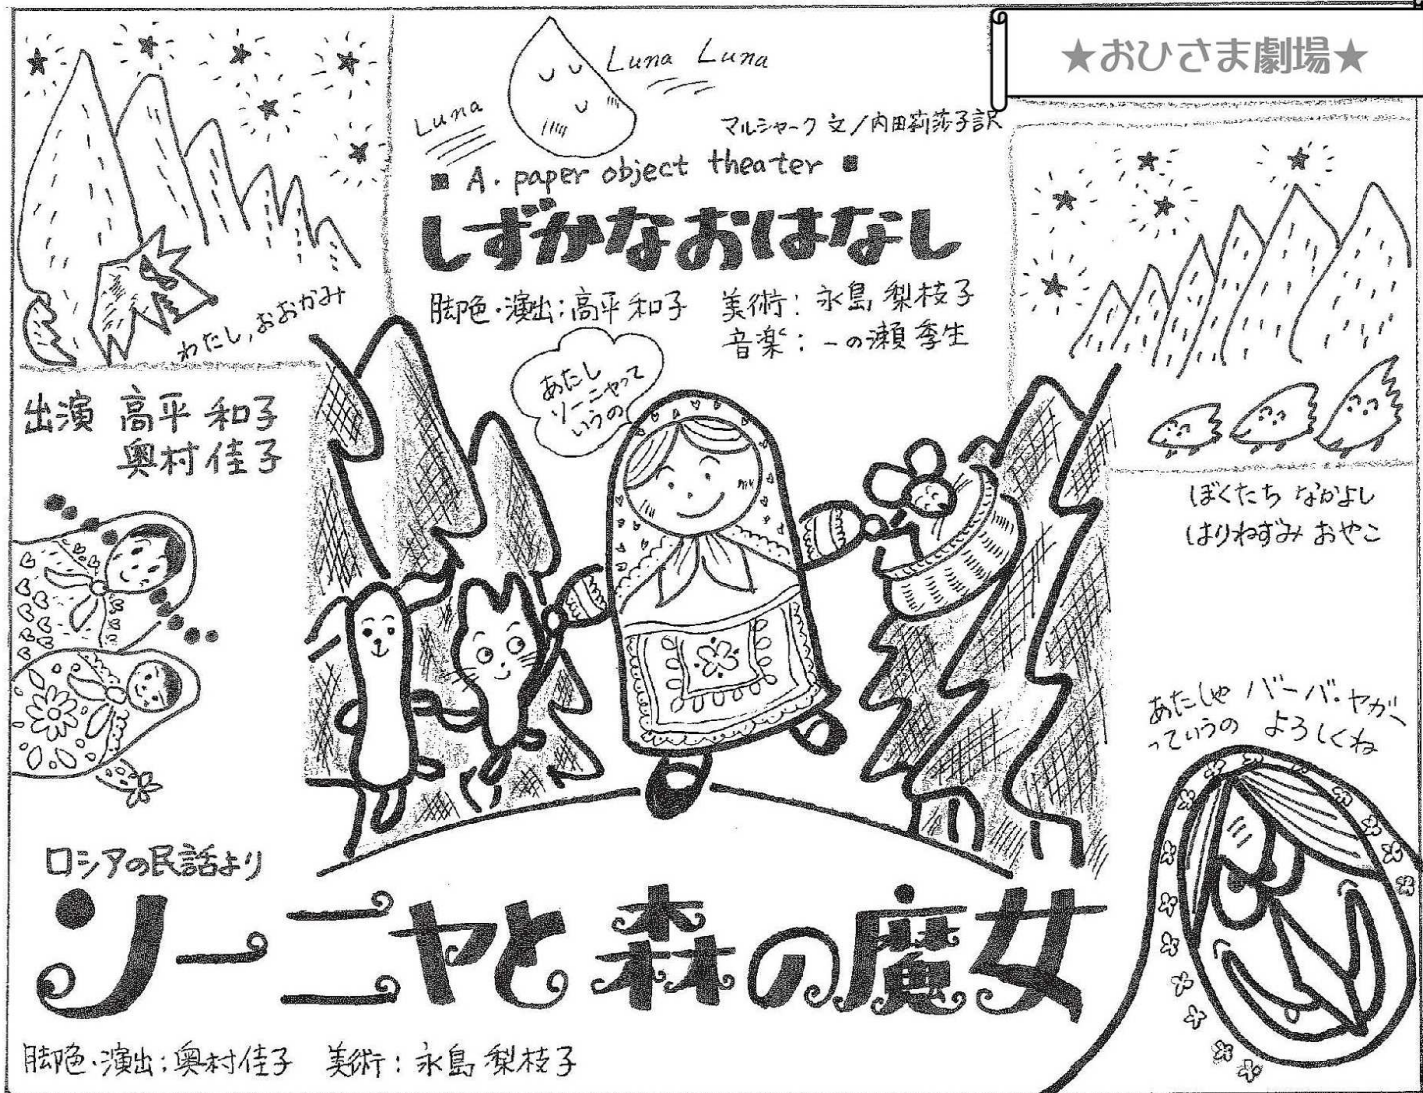 ★おひさま劇場★
Luna Luna
Luna
マルシャーク 文/内田莉莎子訳
■ A. paper object theater ■
しずかなおはなし
脚色・演出:高平和子 美術:永島梨枝子
音楽:一の瀬季生
わたし,おおかみ
あたし
ソーニャって
いうの
出演 高平和子
奥村佳子
ぼくたち なかよし
はりねずみ おやこ
あたしゃ バーバ・ヤガー
っていうの よろしくね
ロシアの民話より
ソーニャと森の魔女
脚色・演出:奥村佳子 美術:永島梨枝子